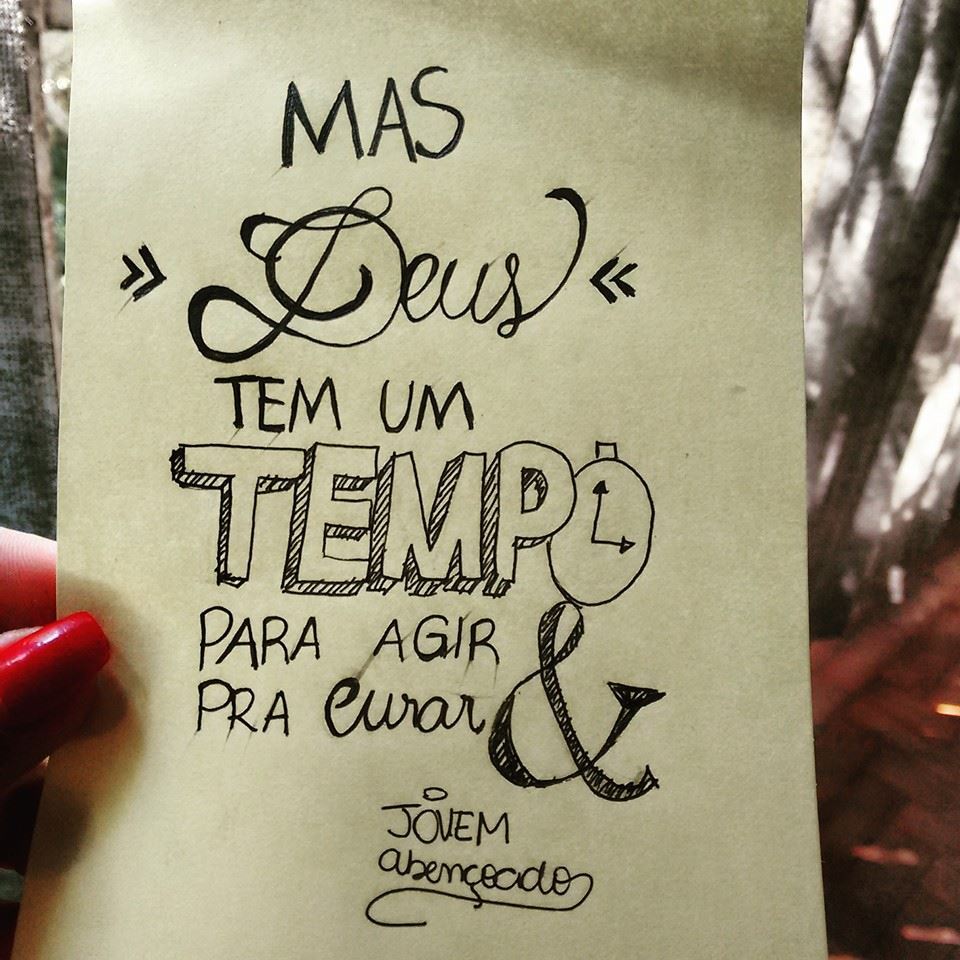 MAS
» Deus «
TEM UM
TEMPO
PARA AGIR
PRA Curar &
JOVEM
abençoado